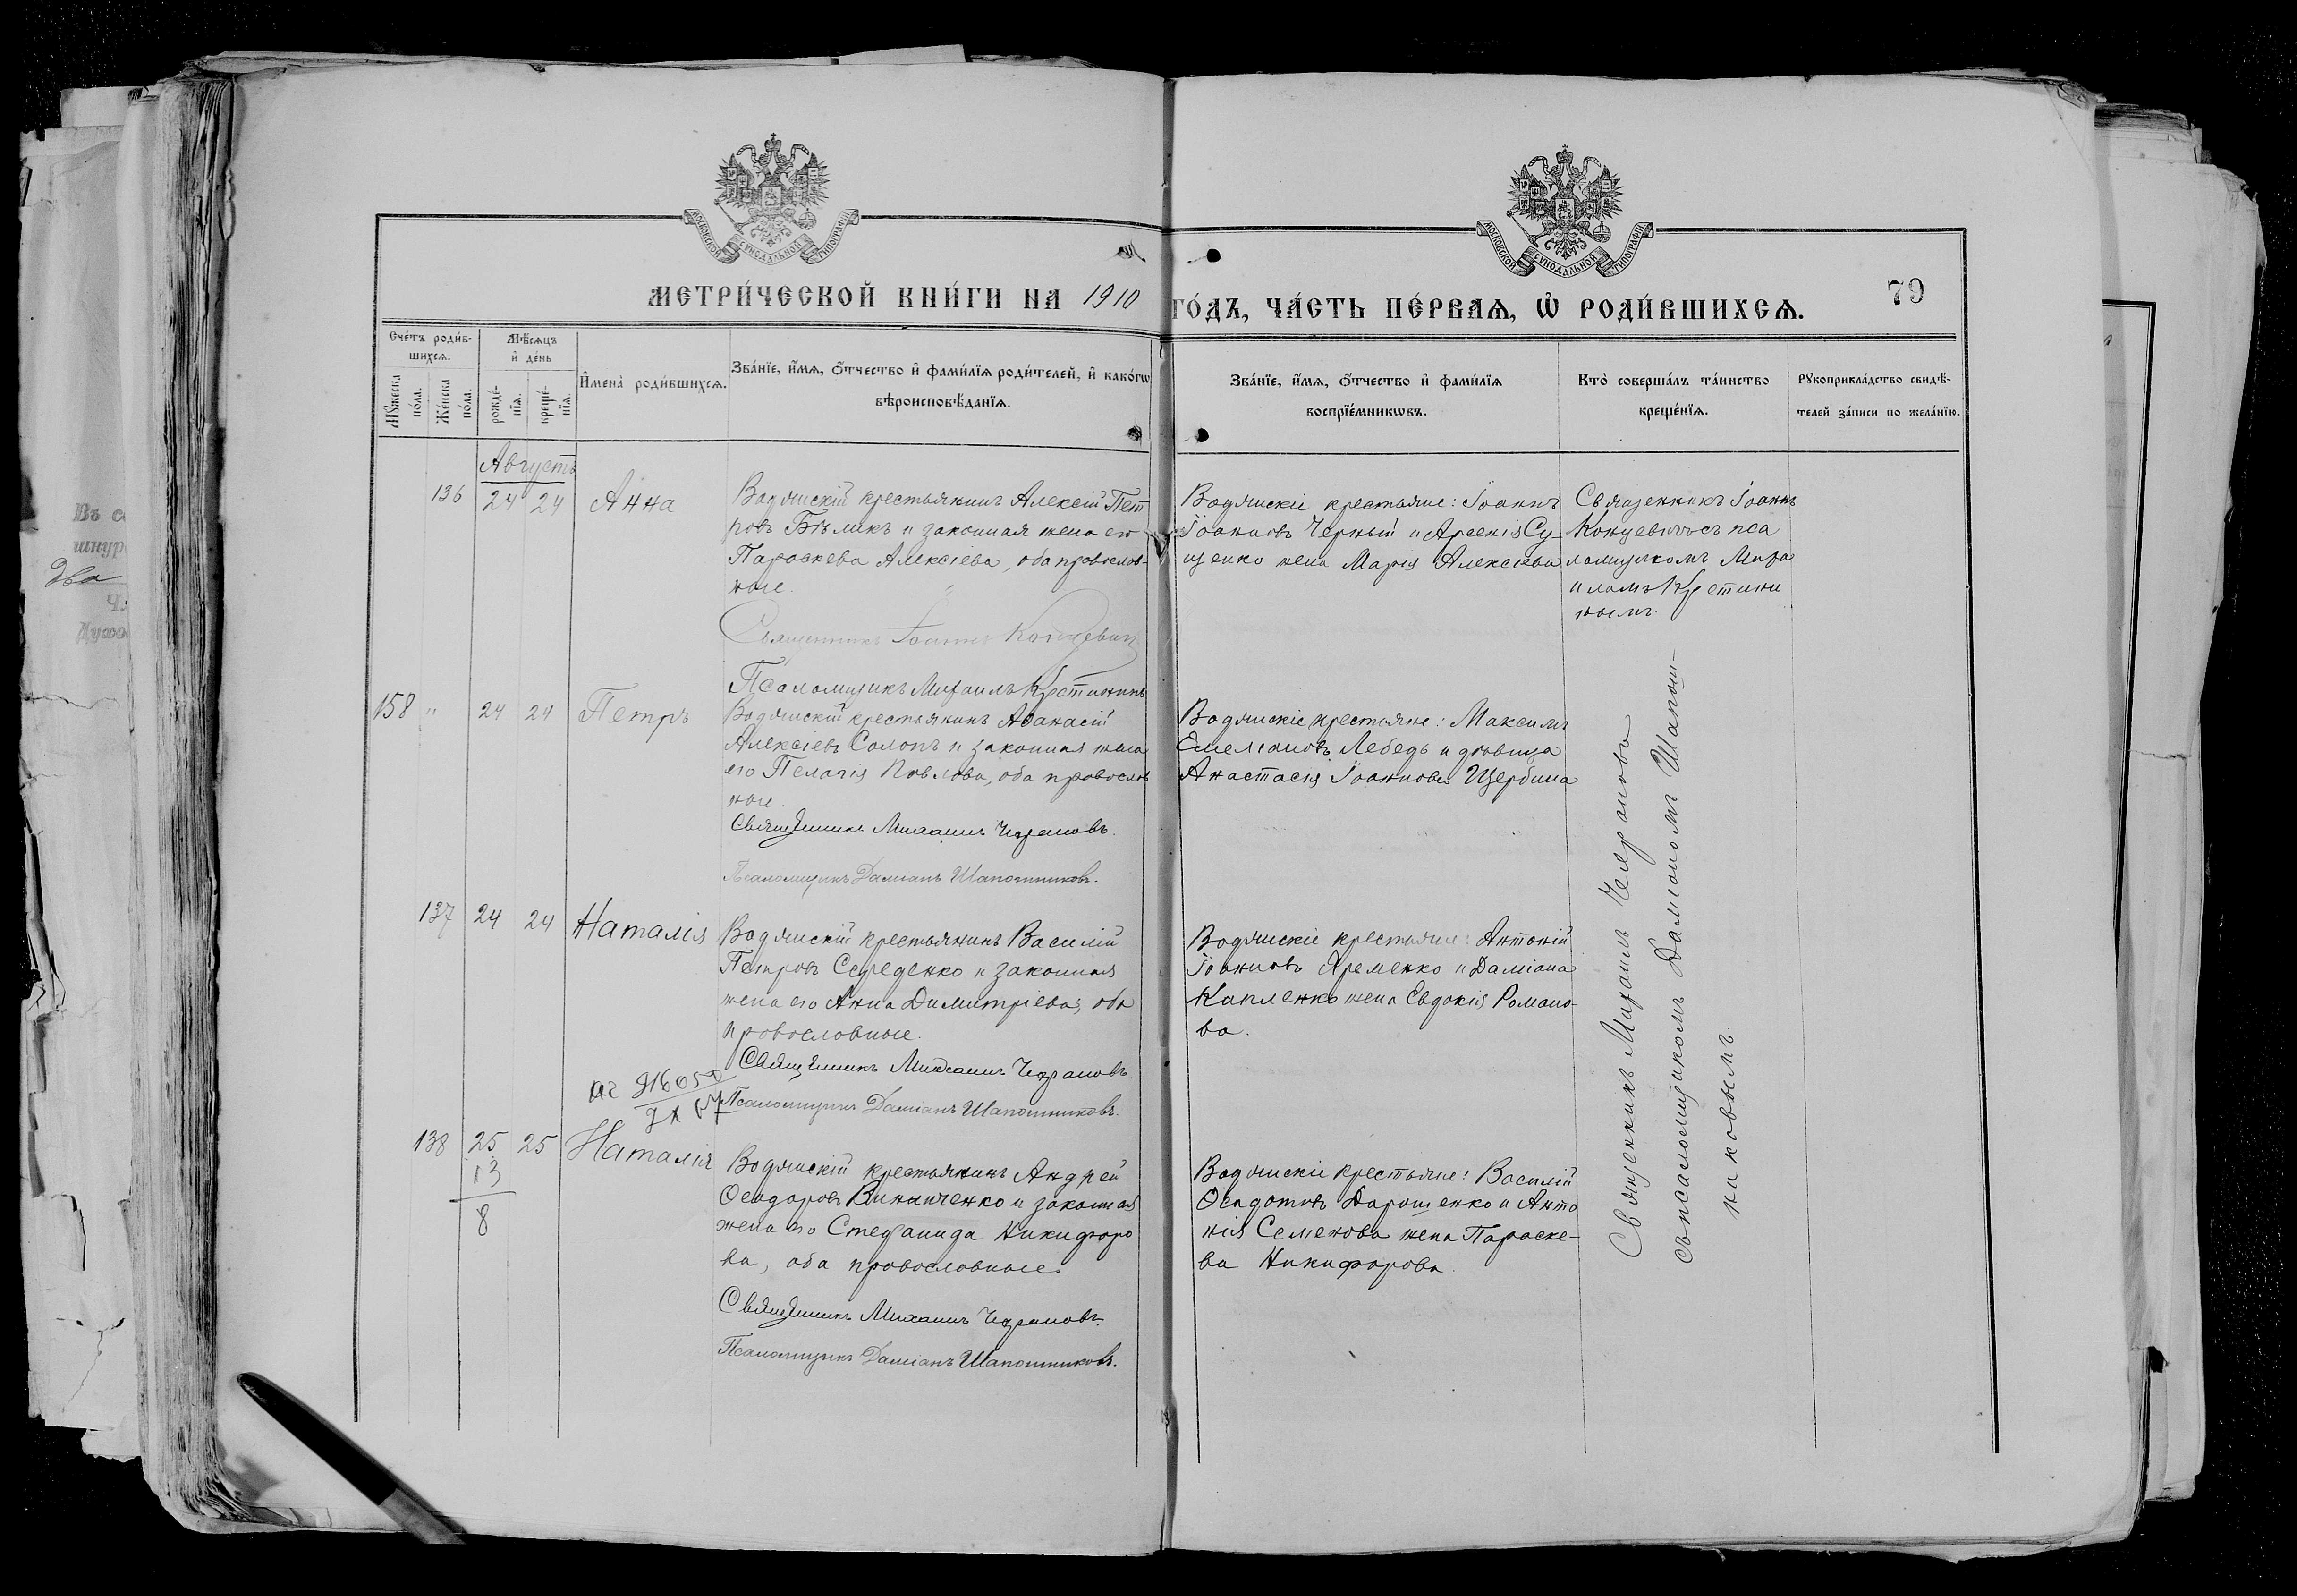 МОСКОВСКОЙ СѴНОДАЛЬНОЙ ТИПОГРАФІИ
МОСКОВСКОЙ СѴНОДАЛЬНОЙ ТИПОГРАФІИ
МЕТРИ́ЧЕСКОЙ КНИ́ГИ НА 1910 ГО́ДЪ, ЧА́СТЬ ПЕ́РВАѦ, Ѽ РОДИ́ВШИХСѦ.
79
Сче́тъ роди́в-
шихсѧ.
Мꙋжеска по́ла.
Же́нска по́ла.
Мѣ́сѧцъ
и҆ де́нь
рожде́-
нїѧ.
креще́-
нїѧ.
И҆мена̀ роди́вшихсѧ.
Зва́нїе, и҆́мѧ, ѻ҆́тчество и҆ фами́лїѧ роди́телей, и҆ како́гѡ
вѣроисповѣ́данїѧ.
Зва́нїе, и҆́мѧ, ѻ҆́тчество и҆ фами́лїѧ
воспрїе́мникѡвъ.
Кто̀ соверша́лъ та́инство
креще́нїѧ.
Рꙋкоприкла́дство свидѣ́-
телей за́писи по жела́нїю.
Августъ
136 24 24 Анна
Водянскій крестьянинъ Алексій Пет
ровъ Бѣликъ и законная жена его
Параскева Алексіева, оба православ-
ные.
Священникъ Іоаннъ Концевич
Псаломщикъ Михаилъ Крестининъ
Водянскіе крестьяне: Іоаннъ
Іоанновъ Черный и Арсенія Су-
щенко жена Марія Алексіева
Священникъ Іоаннъ
Концевичъ съ пса
ломщикомъ Миха
иломъ Крестини
нымъ.
158 " 24 24 Петръ
Водянскій крестьянинъ Аѳанасій
Алексіевъ Солопъ и законная жена
его Пелагія Павлова, оба православ
ные.
Священникъ Михаилъ Чефрановъ.
Псаломщикъ Даміанъ Шапошниковъ.
Водянскіе крестьяне: Максимъ
Емеліановъ Лебедь и дѣвица
Анастасія Іоаннова Щербина
137 24 24 Наталія
Водянскій крестьянинъ Василій
Петровъ Середенко и законная
жена его Анна Димитріева, оба
православные.
Священникъ Михаилъ Чефрановъ.
Псаломщикъ Даміанъ Шапошниковъ.
Водянскіе крестьяне: Антоній
Іоанновъ Яременко и Даміана
Капленко жена Евдокія Романо-
ва.
138 25 25 Наталія
13
8
Водянскій крестьянинъ Андрей
Ѳеодоровъ Винниченко и законная
жена его Стефанида Никифоро
ва, оба православные.
Священникъ Михаилъ Чефрановъ.
Псаломщикъ Даміанъ Шапошниковъ.
Водянскіе крестьяне: Василій
Ѳеодотовъ Дорошенко и Анто
нія Семенова жена Параске-
ва Никифорова.
Священникъ Михаилъ Чефрановъ
съ псаломщикомъ Даміаномъ Шапош-
никовымъ.